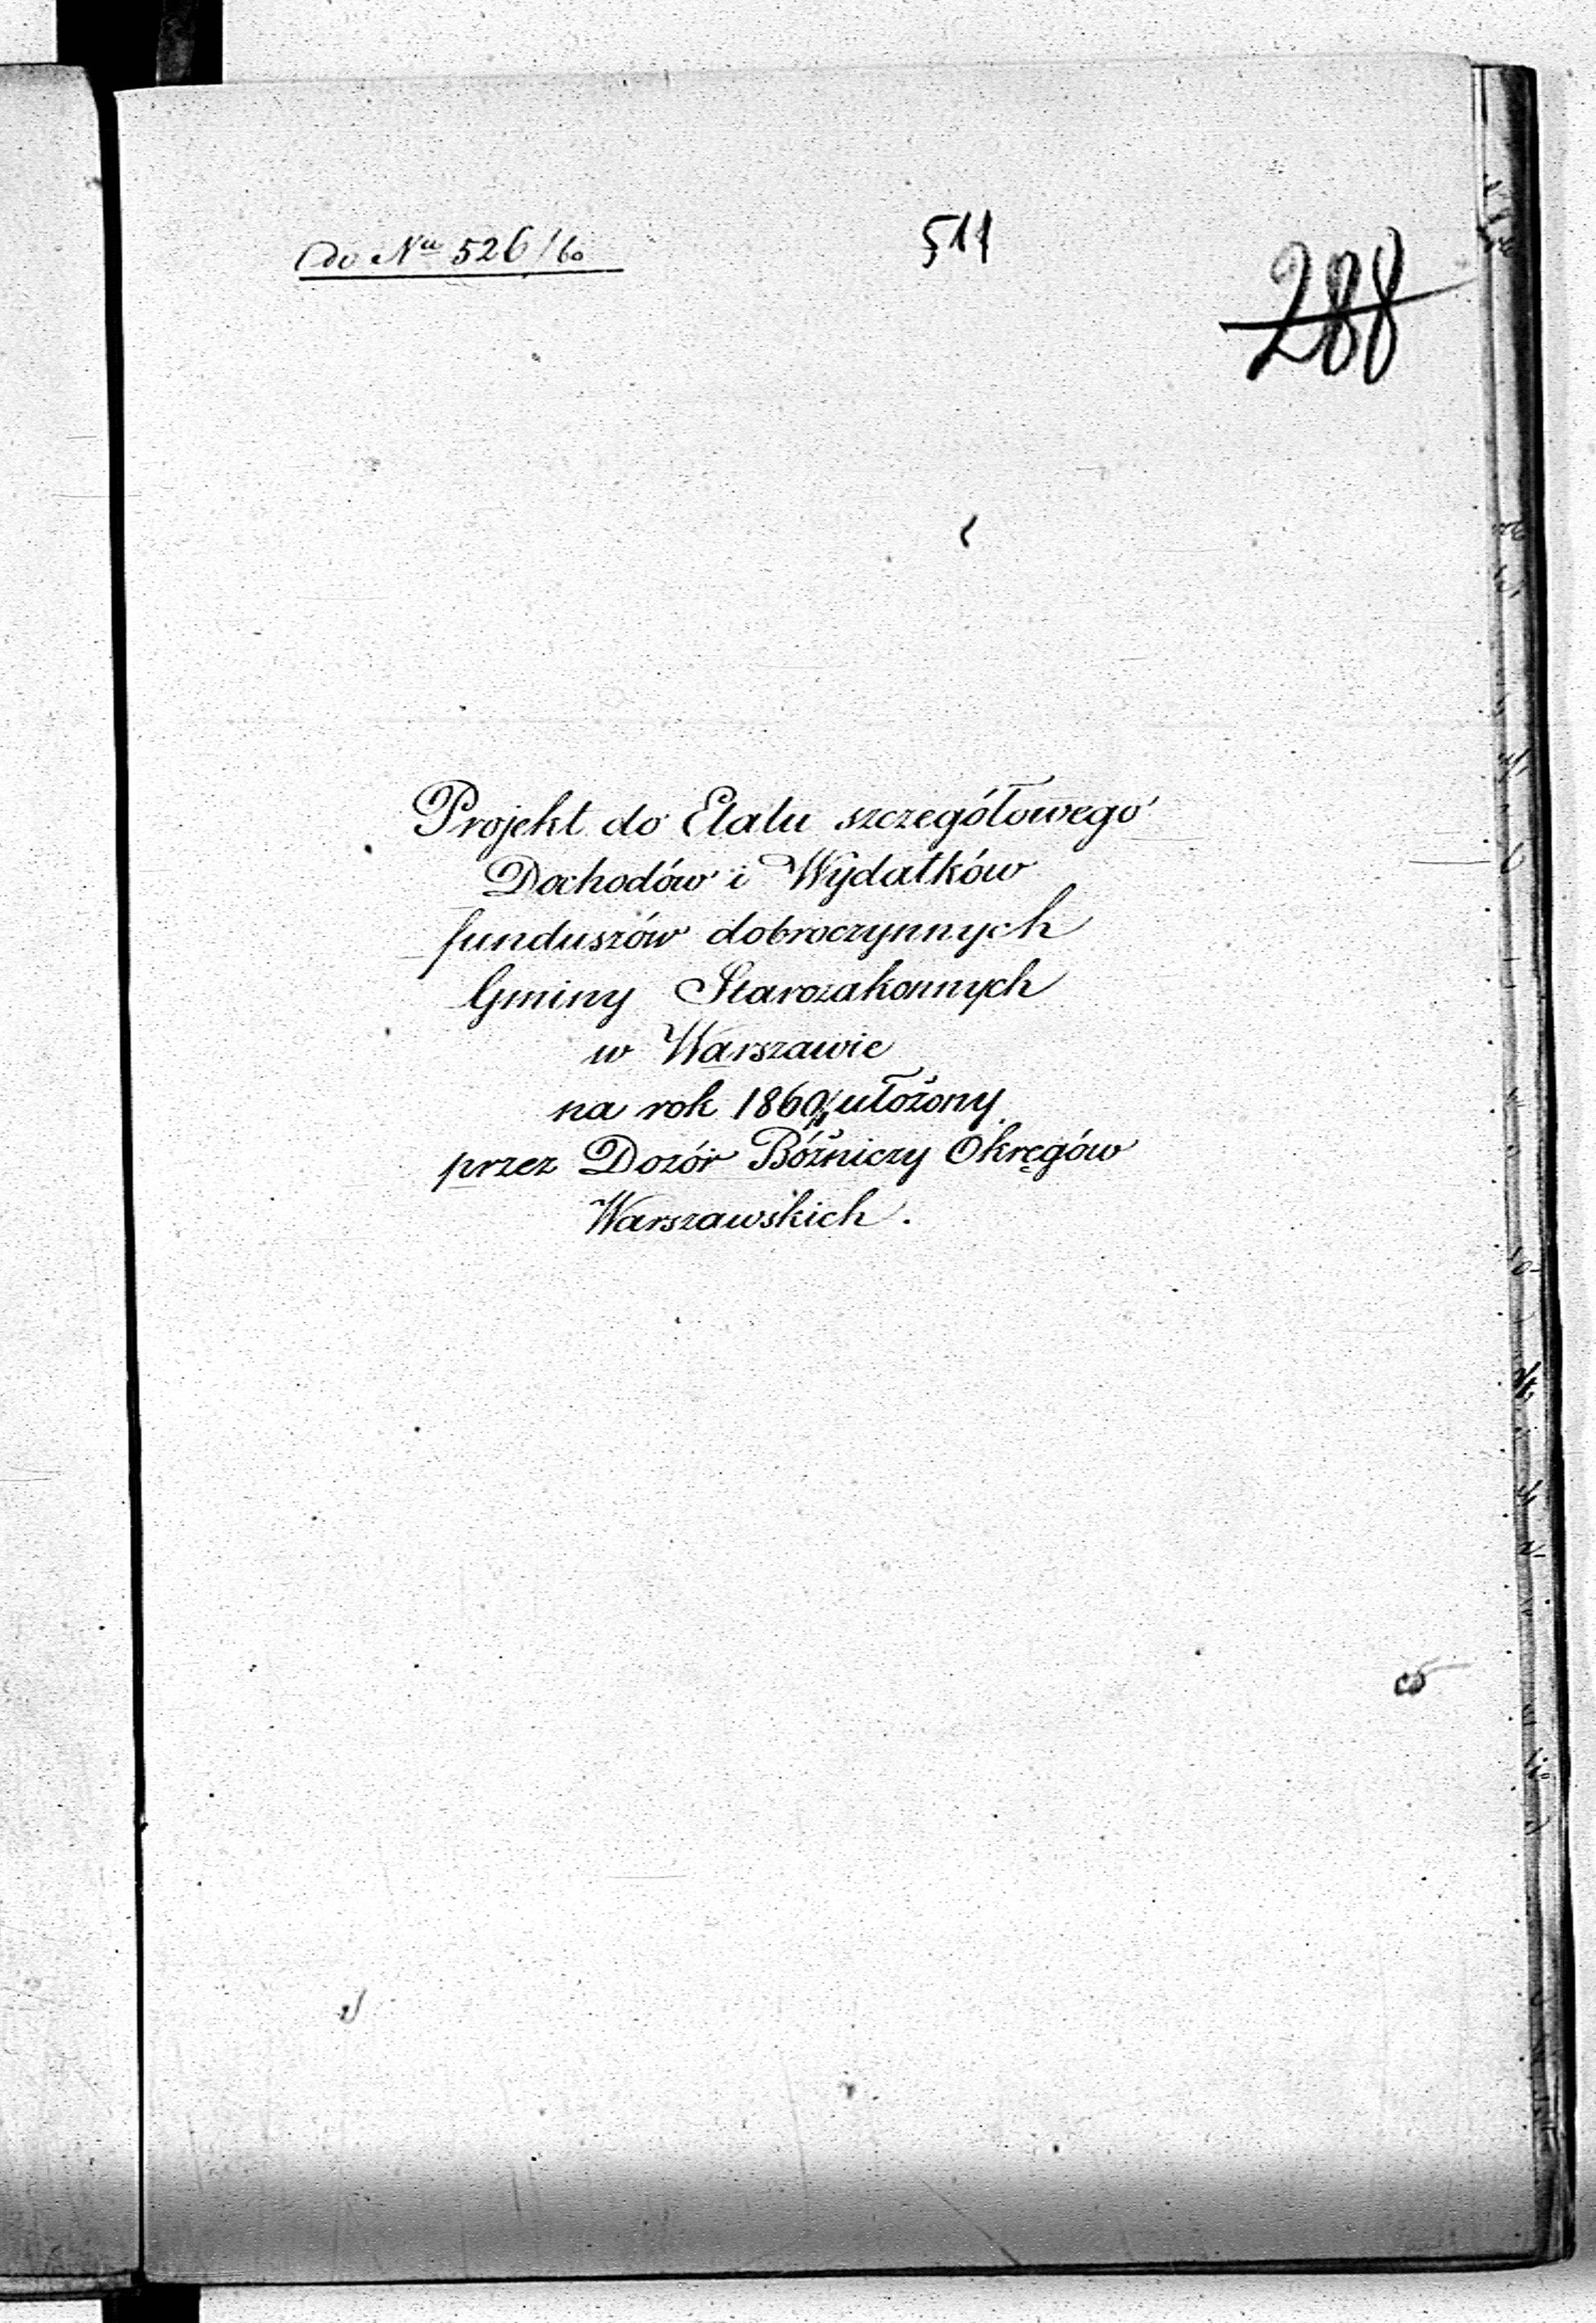 do Nu 526/60
511
288
Projekt do Etatu szczegółowego
Dochodów i Wydatków
funduszów dobroczynnych
Gminy Starozakonnych
w Warszawie
na rok 1860 ułożony
przez Dozór Bóżniczy Okręgów
Warszawskich.